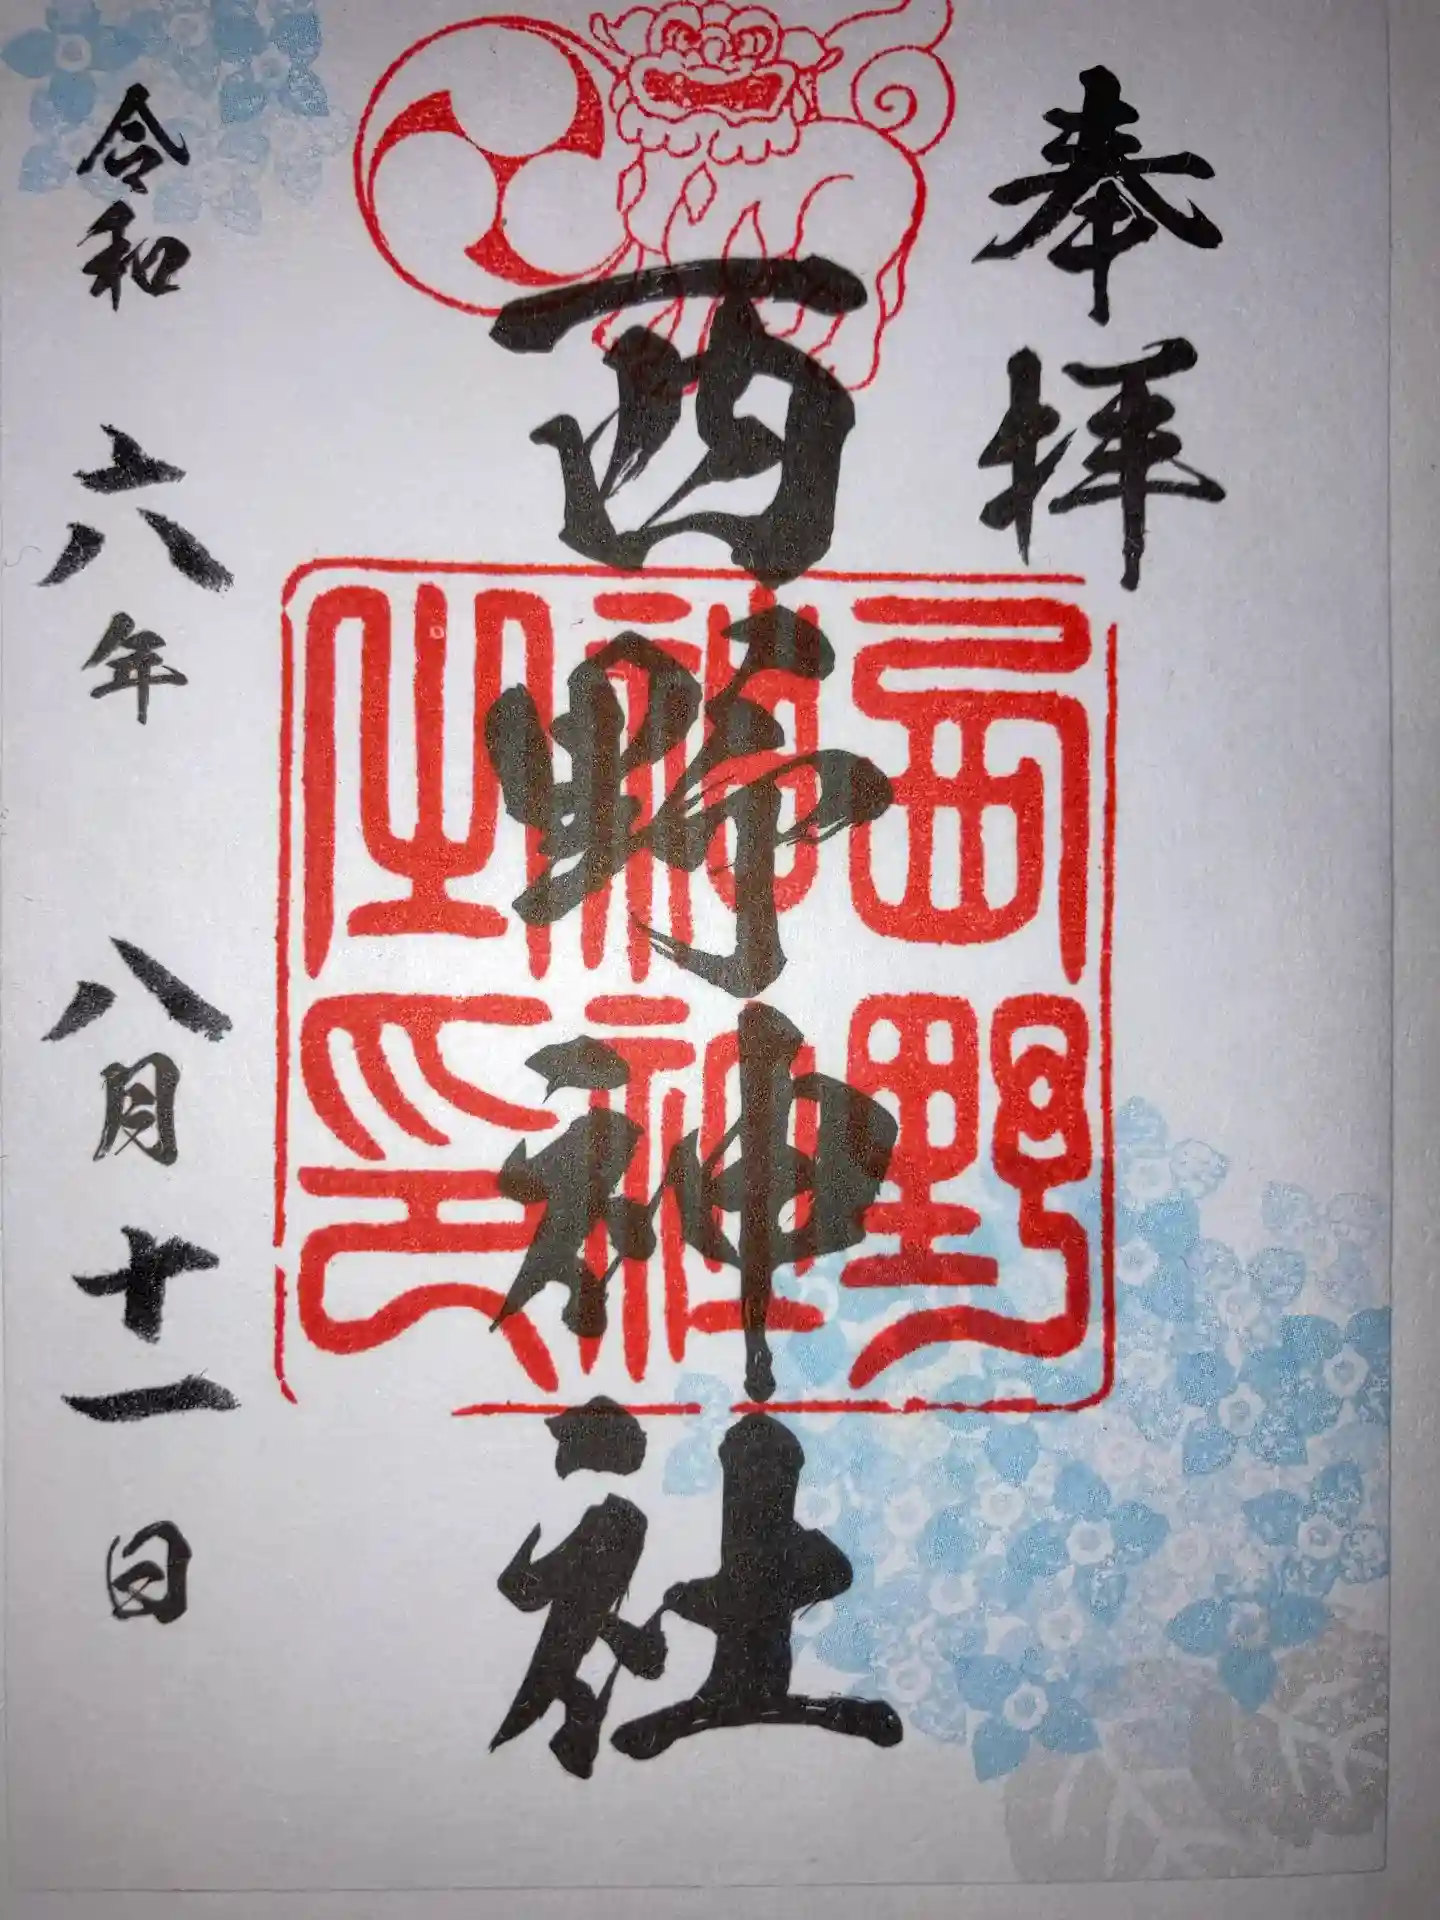 奉拝
西野神社
西野神社之印
令和六年八月十一日